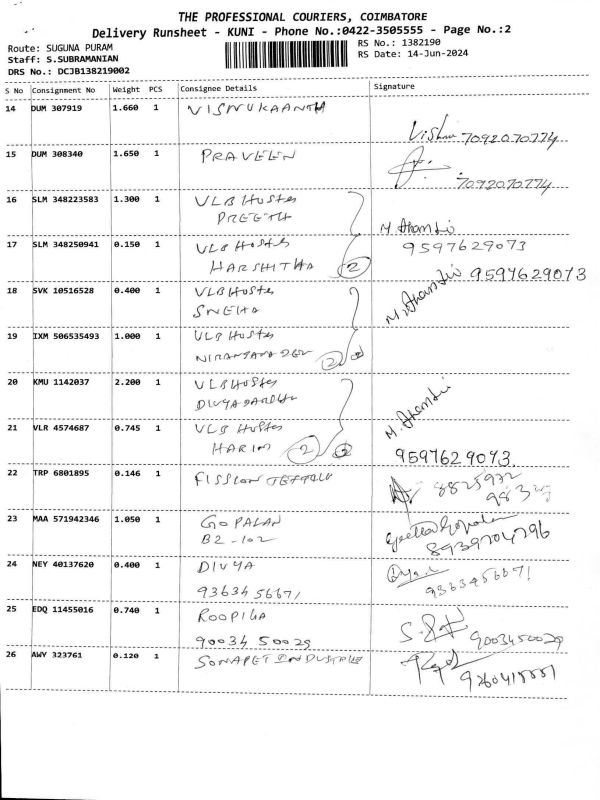 THE PROFESSIONAL COURIERS, COIMBATORE
Delivery Runsheet - KUNI - Phone No.:0422-3505555 - Page No.:2
Route: SUGUNA PURAM
Staff: S.SUBRAMANIAN
DRS No.: DCJB138219002
RS No.: 1382190
RS Date: 14-Jun-2024
S No Consignment No Weight PCS Consignee Details Signature
14 DUM 307919 1.660 1 VISNUKAANTH
Vishnu 7092070774
15 DUM 308340 1.650 1 PRAVEEN
7092070774
16 SLM 348223583 1.300 1 VLB Hostes
PREETHA
9597629073
17 SLM 348250941 0.150 1 VLB Hostes
HARSHITHA 2
9597629073
18 SVK 10516528 0.400 1 VLB Hostes
SNEHA
19 IXM 506535493 1.000 1 VLB Hostes
2
20 KMU 1142037 2.200 1 VLB Hostes
21 VLR 4574687 0.745 1 VLB Hostes
HARINI 2
9597629073.
22 TRP 6801895 0.146 1 FISSION
23 MAA 571942346 1.050 1 GOPALAN
B2-102
Geetha Gopalan
8939704796
24 NEY 40137620 0.400 1 DIVYA
9363456671
9363456671
25 EDQ 11455016 0.740 1 ROOPIKA
9003450029
9003450029
26 AWY 323761 0.120 1